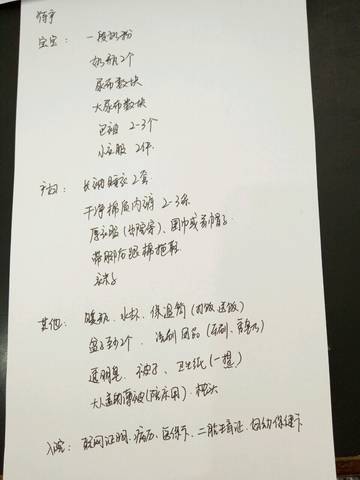 待产
宝宝：一段奶粉
奶瓶2个
尿布数块
大尿布数块
包被 2-3个
小衣服 2件
产妇：长袖睡衣2套
干净棉质内裤 2-3条
厚衣服(出院穿)、围巾或者帽子
带脚后跟棉拖鞋
袜子
其他：暖瓶、水杯、保温筒(打饭送饭)
盆子至少2个、洗刷用品(牙刷、
透明皂、被子、卫生纸(一提)
大人盖的薄被(陪床用)、枕头
入院：联网证明、病历、医保卡、二胎生育证、妇幼保健卡